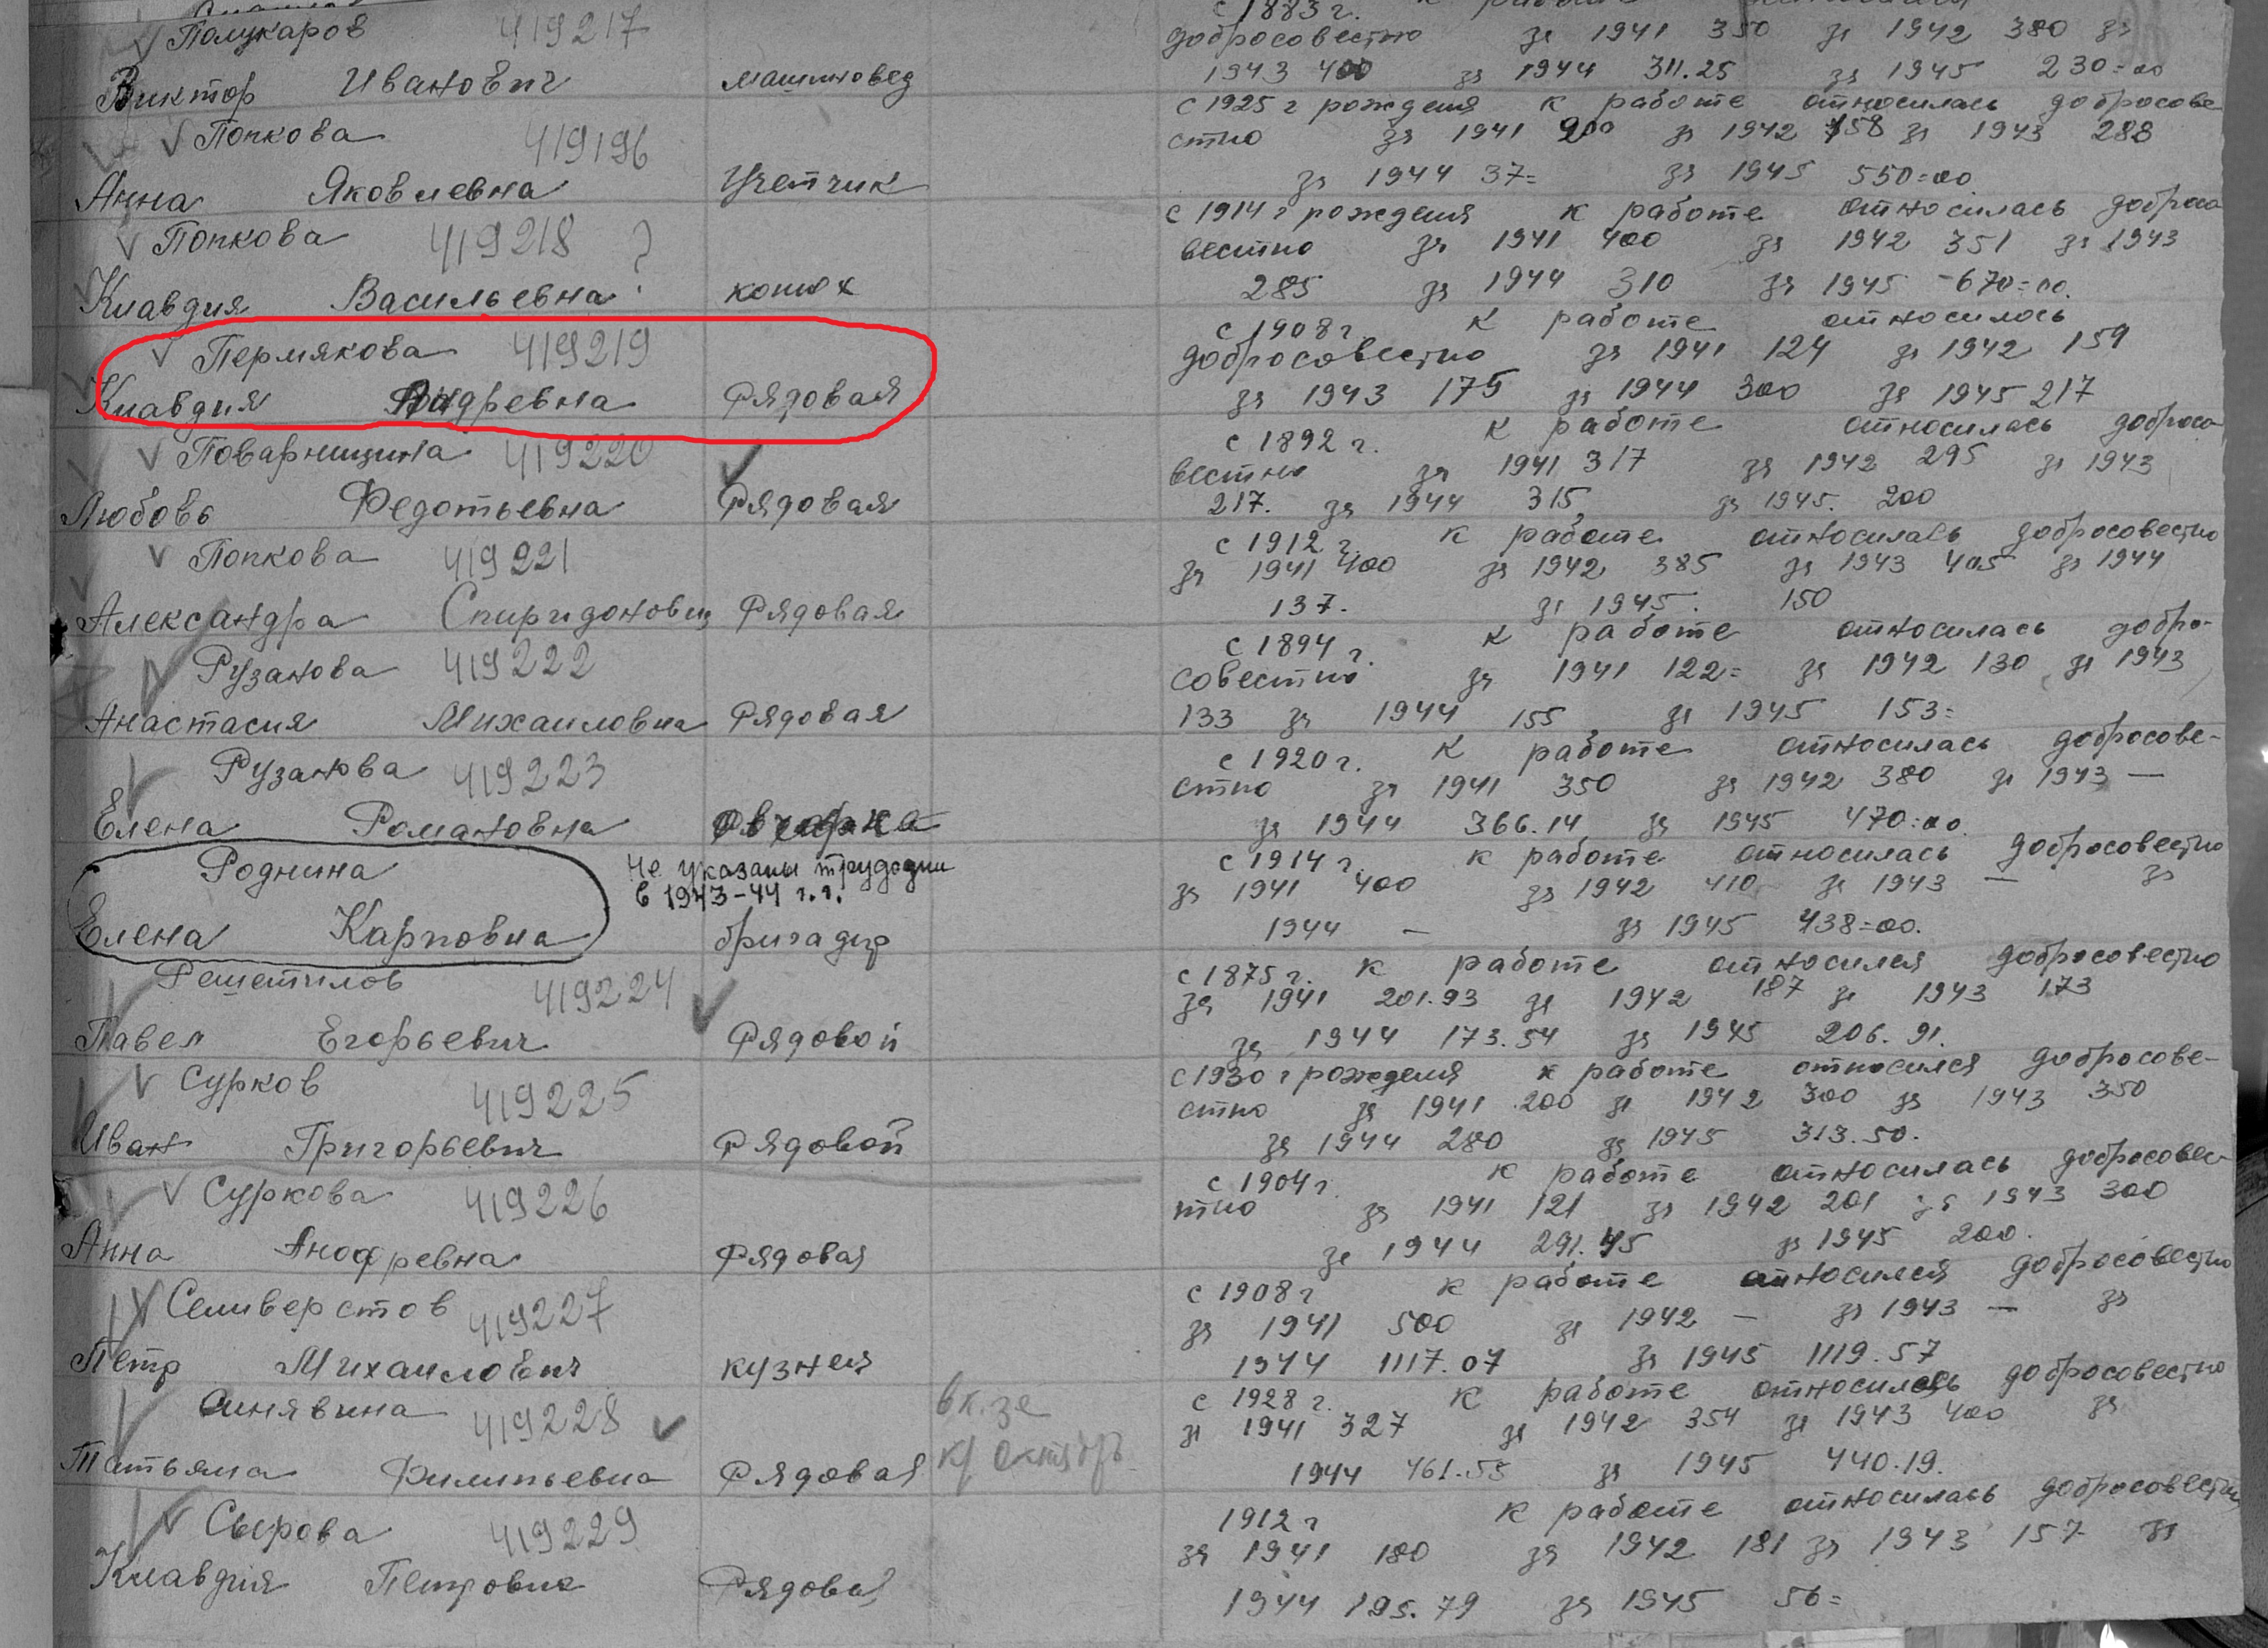 с 1883 г. к работе
Полукаров 419217 добросовестно за 1941 350 за 1942 380 за
Виктор Иванович машиновед 1943 400 за 1944 311.25 за 1945 230=00
с 1925 г рождения к работе относилась добросове-
Попкова 419196 стно за 1941 200 за 1942 158 за 1943 288
Анна Яковлевна Учетчик за 1944 37= за 1945 550=00
с 1914 г рождения к работе относилась добросо
Попкова 419218 ? вестно за 1941 400 за 1942 351 за 1943
Клавдия Васильевна конюх 285 за 1944 310 за 1945 -670=00.
с 1908 г к работе относилась
Пермякова 419219 добросовестно за 1941 124 за 1942 159
Клавдия Андревна Рядовая за 1943 175 за 1944 300 за 1945 217
с 1892 г. к работе относилась добросо
Поварницина 419220 вестно за 1941 317 за 1942 295 за 1943
Любовь Федотьевна Рядовая 217. за 1944 315 за 1945. 200
с 1912 г. к работе относилась добросовестно
Попкова 419221 за 1941 400 за 1942 385 за 1943 405 за 1944
Александра Спиридоновн Рядовая 137. за 1945. 150
с 1894 г. к работе относилась добро-
Рузанова 419222 совестно за 1941 122= за 1942 130 за 1943
Анастасия Михаиловна Рядовая 133 за 1944 155 за 1945 153=
с 1920 г. к работе относилась добросове-
Рузанова 419223 стно за 1941 350 за 1942 380 за 1943 —
Елена Романовна овчарка за 1944 366.14 за 1945 470=00.
с 1914 г. к работе относилась добросовестно
Роднина не указаны трудодни за 1941 400 за 1942 410 за 1943 — за
в 1943-44 г.г.
Елена Карповна бригадир 1944 — за 1945 438=00.
с 1875 г. к работе относился добросовестно
Решетилов 419224 за 1941 201.93 за 1942 187 за 1943 173
Павел Егорьевич Рядовой за 1944 173.54 за 1945 206.91.
с 1930 г рождения к работе относился добросове-
Сурков 419225 стно за 1941 200 за 1942 300 за 1943 350
Иван Григорьевич Рядовой за 1944 280 за 1945 313.50.
с 1904 г. к работе относилась добросовес-
Суркова 419226 тно за 1941 121 за 1942 201 за 1943 300
Анна Анофревна Рядовая за 1944 291.45 за 1945 200.
с 1908 г к работе относился добросовестно
Селиверстов 419227 за 1941 500 за 1942 — за 1943 — за
Петр Михаилович кузнец 1944 1117.07 за 1945 1119.57
с 1928 г. к работе относилась добросовестно
Синявина 419228 вк.зе за 1941 327 за 1942 354 за 1943 400 за
Татьяна Филипьевна Рядовая к/ октябрь 1944 461.55 за 1945 440.19.
1912 г к работе относилась добросовестно
Сырова 419229 за 1941 180 за 1942 181 за 1943 157 за
Клавдия Петровна Рядовая 1944 195.79 за 1945 56=